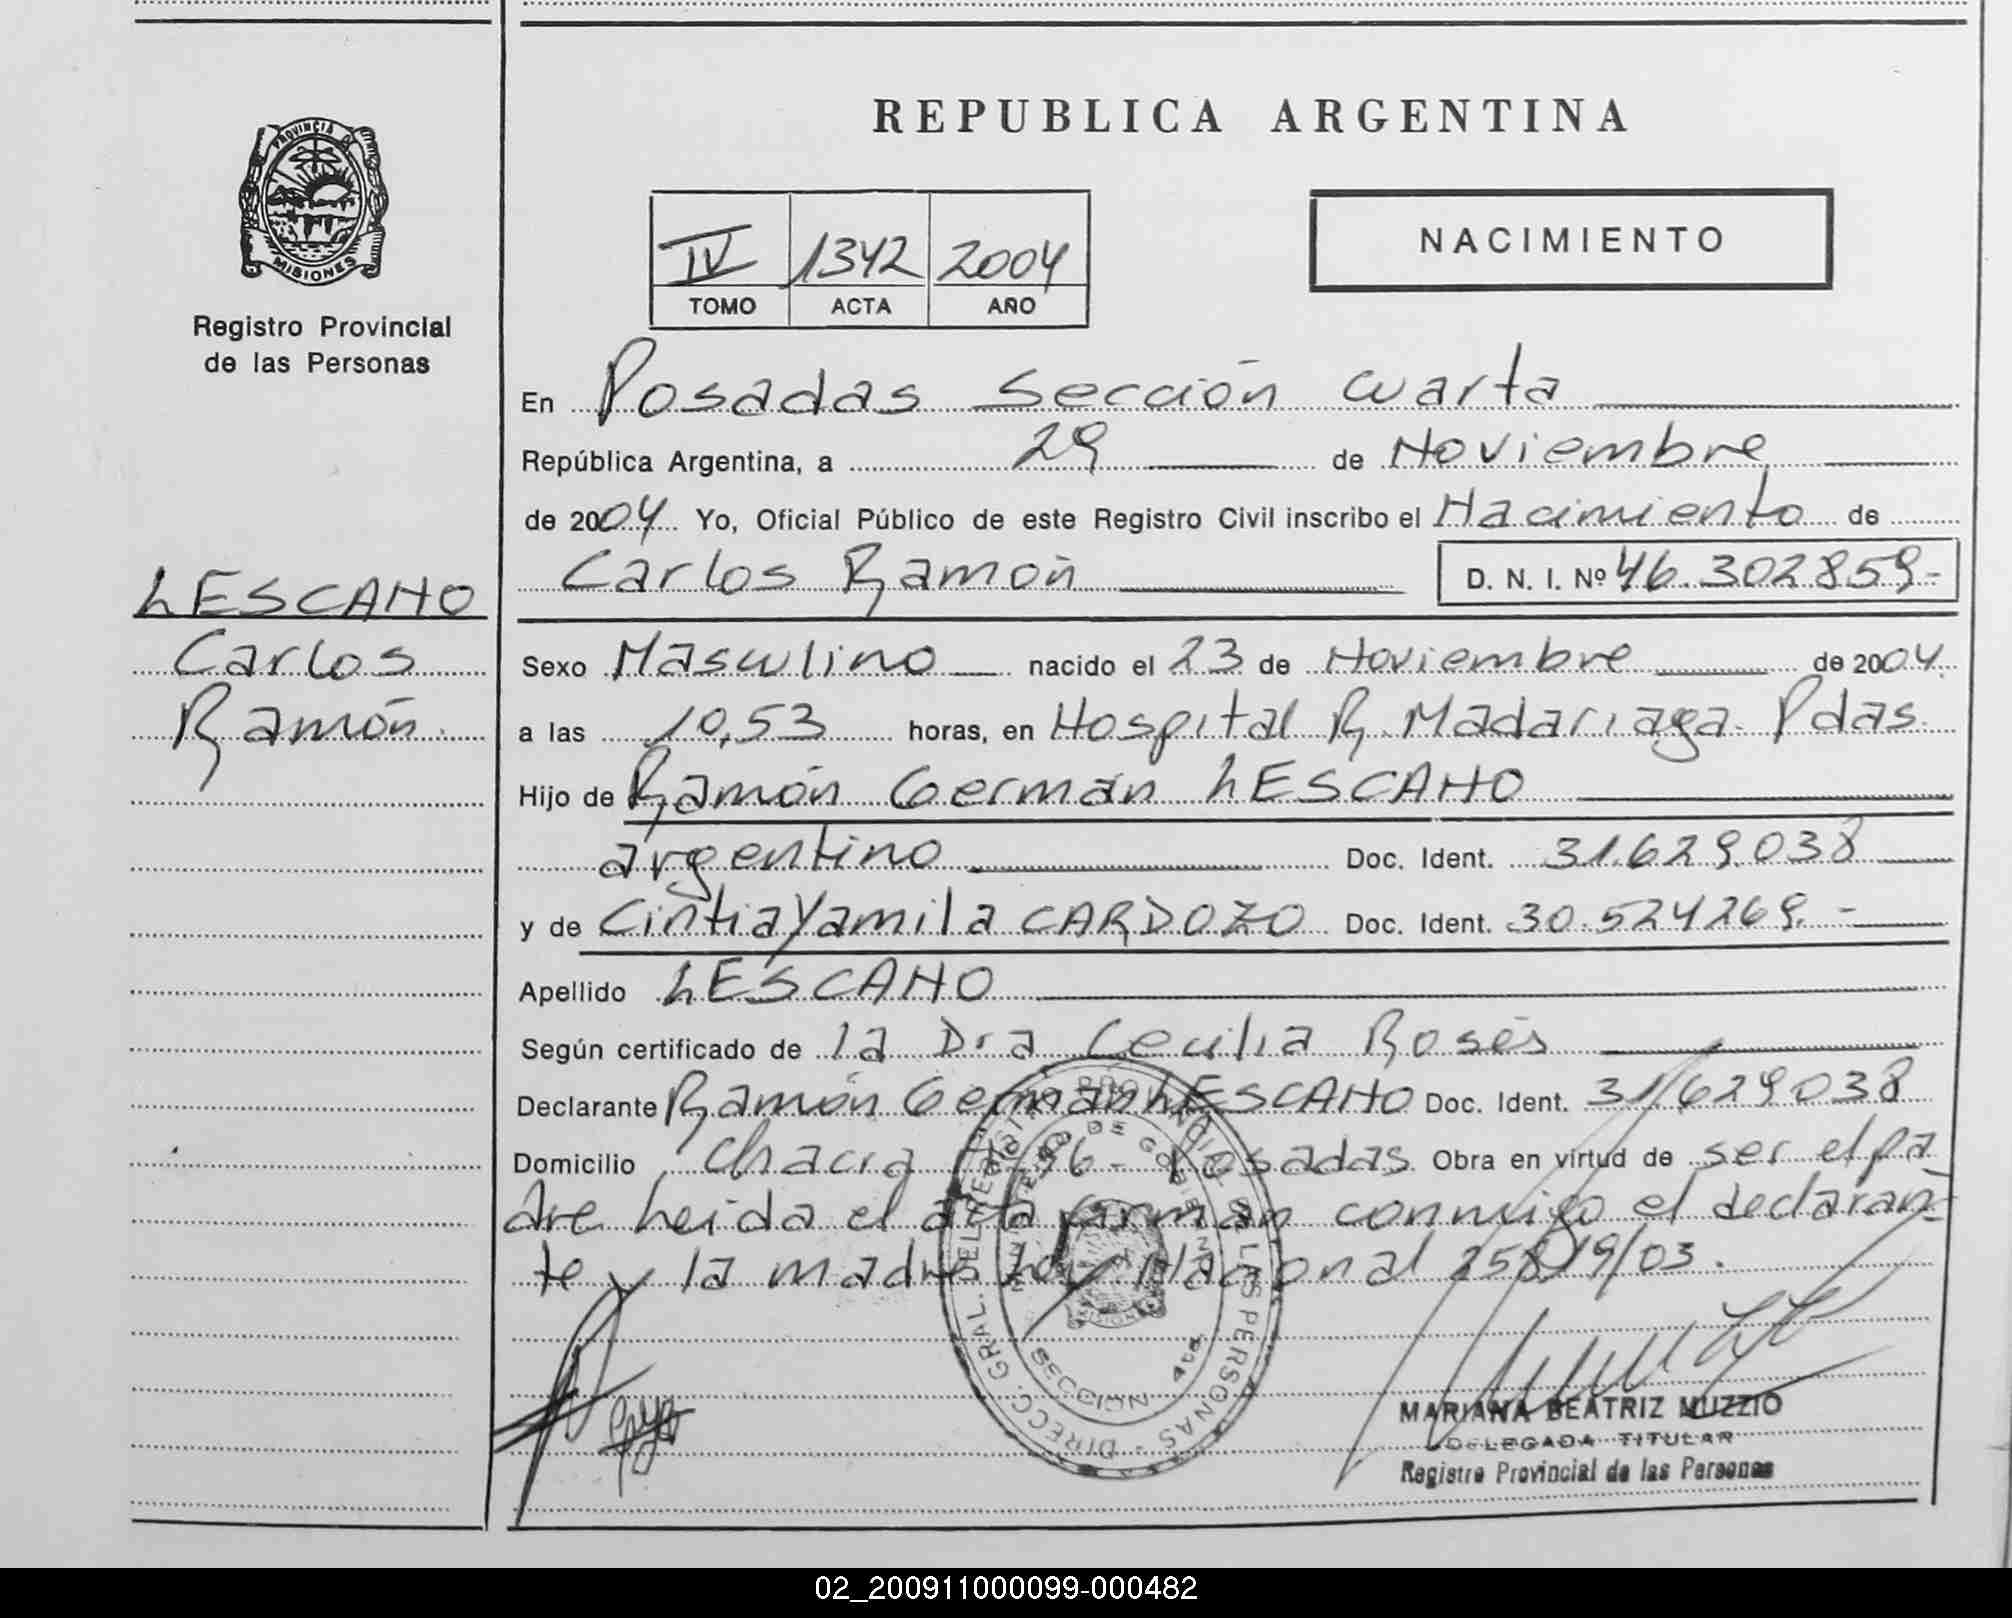 REPUBLICA ARGENTINA
PROVINCIA DE
MISIONES
Registro Provincial
de las Personas
IV 1342 2004
TOMO ACTA AÑO
NACIMIENTO
LESCANO
Carlos
Ramón
En Posadas Sección Cuarta
República Argentina, a 29 de Noviembre
de 2004 Yo, Oficial Público de este Registro Civil inscribo el Nacimiento de
Carlos Ramón D. N. I. Nº 46.302859-
Sexo Masculino nacido el 23 de Noviembre de 2004.
a las 10,53 horas, en Hospital R. Madariaga. Pdas.
Hijo de Ramón Germán LESCANO
argentino Doc. Ident. 31.629.038
y de Cintia Yamila CARDOZO Doc. Ident. 30.524269.-
Apellido LESCANO
Según certificado de la Dra Cecilia Rosés
Declarante Ramón Germán LESCANO Doc. Ident. 31629038
Domicilio Chacra 96- Posadas Obra en virtud de ser el pa
dre Leida el acta firman conmigo el declaran-
te y la madre Ley Nacional 25819/03.
DIRECC. GRAL. DEL REGISTRO PROVINCIAL DE LAS PERSONAS
MINISTERIO DE GOBIERNO
MISIONES
SECCION 4ta
MARIANA BEATRIZ MUZZIO
DELEGADA TITULAR
Registro Provincial de las Personas
02_200911000099-000482